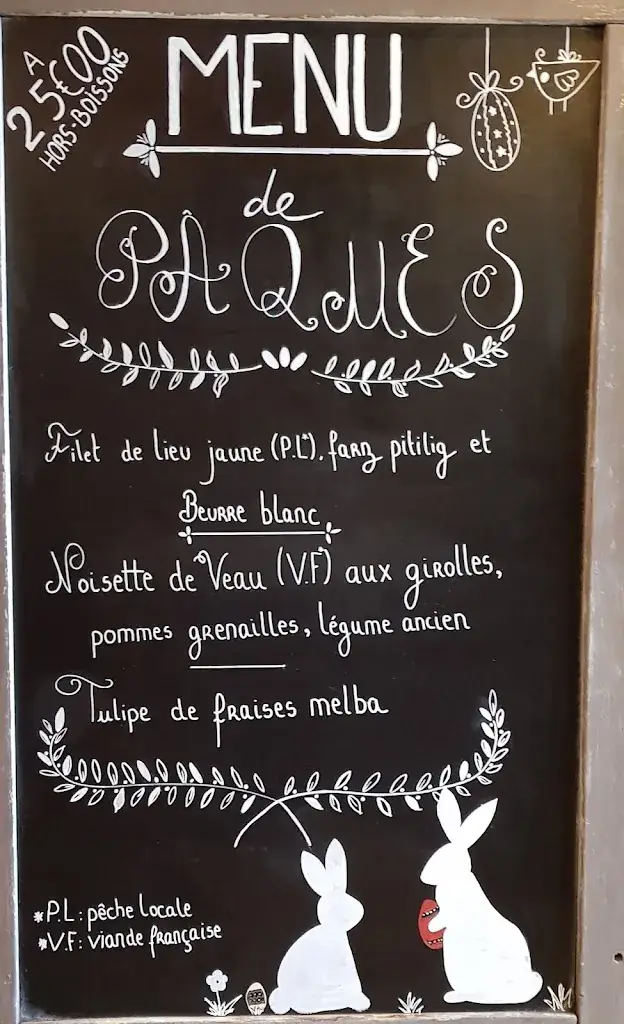 À
25€00
HORS-BOISSONS
MENU
de
PÂQUES
Filet de lieu jaune (P.L*), farz pitilig et
Beurre blanc
Noisette de Veau (V.F*) aux girolles,
pommes grenailles, légume ancien
Tulipe de fraises melba
*P.L : pêche locale
*V.F : viande française